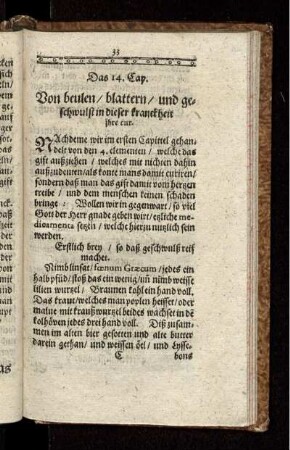 33
Das 14. Cap.
Von beulen/ blattern/ und ge-
schwulst in dieser kranckheit
ihre cur.
NAchdeme wir im ersten Capittel gehan-
delt von den 4. elementen/ welche das
gift außziehen/ welches mit nichten dahin
außzudeuten/ als könte man damit curiren/
sondern daß man das gift damit vom hertzen
treibe/ und dem menschen keinen schaden
bringe: Wollen wir in gegenwart/ so viel
Gott der Herr gnade geben wirt/ etzliche me-
dicamenta setzen/ welche hierzu nutzlich sein
werden.
Erstlich brey/ so daß geschwulst reif
machet.
Nimb linsat/ fœnum Græcum/ jedes ein
halb pfüd/ stoß das ein wenig/ uñ nimb weisse
lilien wurtzel/ Braunen kohl ein hand voll.
Das kraut/ welches man poplen heisset/ oder
malue mit krauß wurtzel beides wächset in dẽ
kolhöven jedes drei hand voll. Diß zusam-
men im alten bier gesotten und alte butter
darein gethan/ und weissen öel/ und Lysse-
C bons